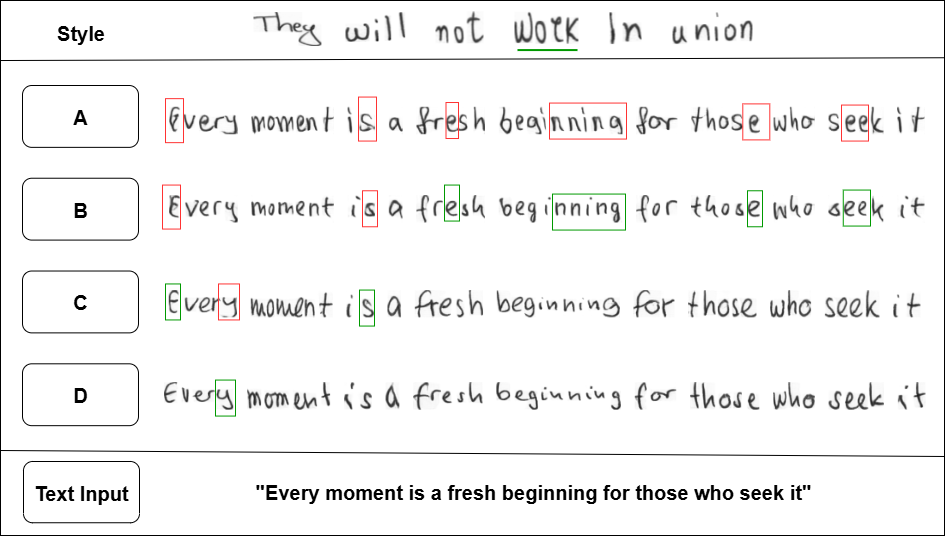 Style They will not work In union
A Every moment is a fresh beginning for those who seek it
B Every moment is a fresh beginning for those who seek it
C Every moment is a fresh beginning for those who seek it
D Every moment is a fresh beginning for those who seek it
Text Input "Every moment is a fresh beginning for those who seek it"